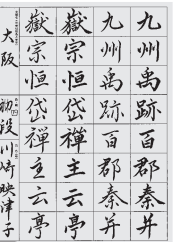 九州禹跡百郡秦并
九州禹跡百郡秦并
嶽宗恒岱禪主云亭
嶽宗恒岱禪主云亭
大阪 初段 川崎映津子